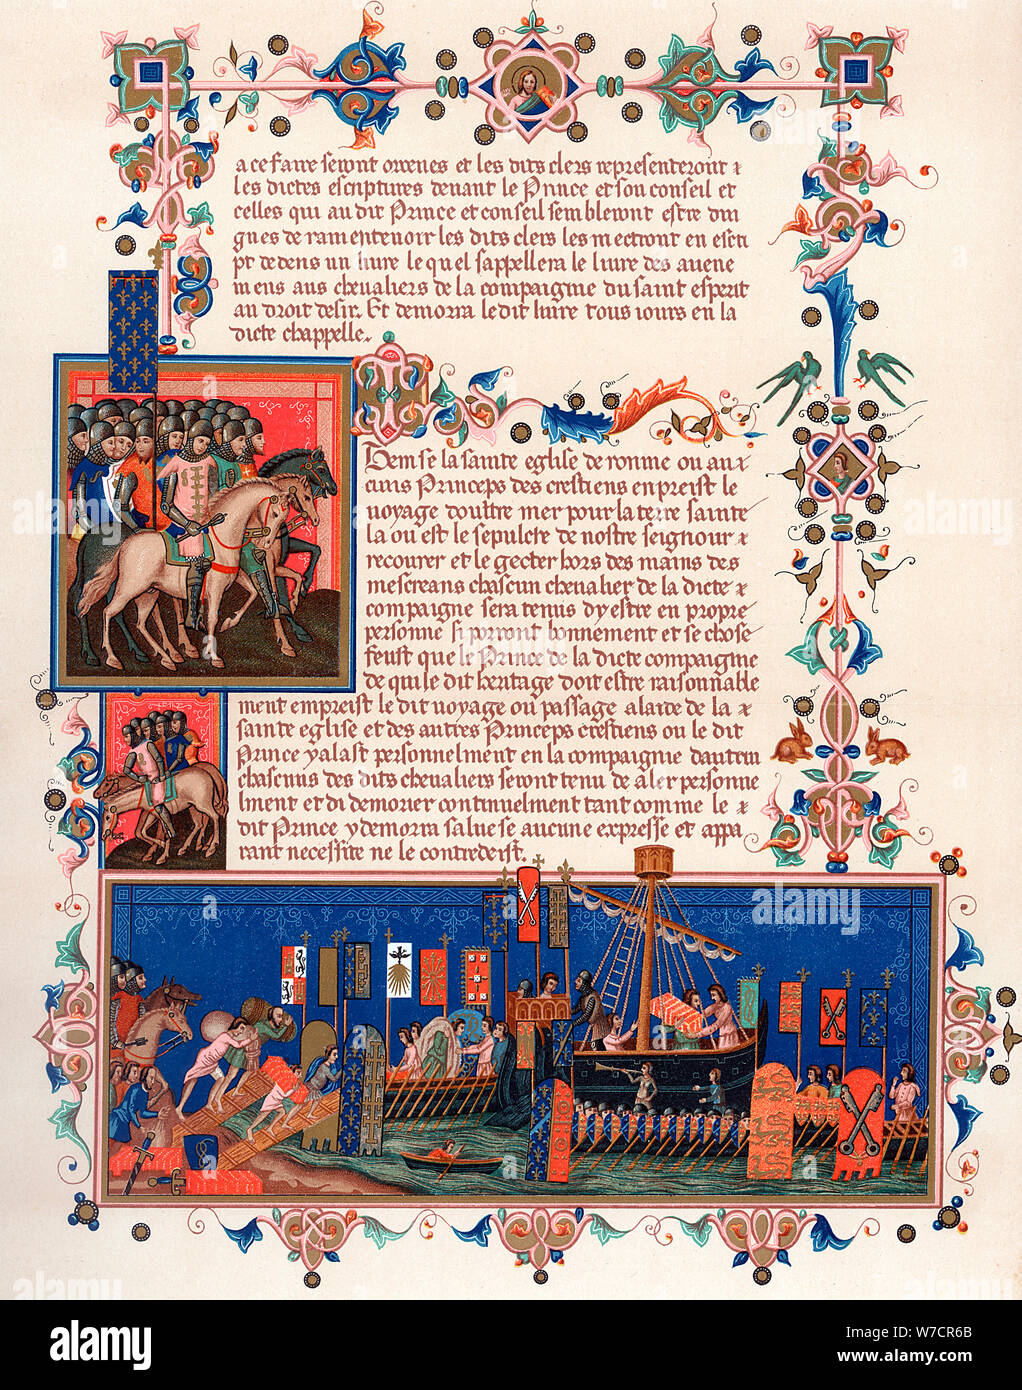 a ce faire seront ordenes et les dits clers representeront &
les dictes escriptures devant le Prince et son conseil et
celles qui au dit Prince et conseil sembleront estre din
gnes de ramentevoir les dits clers les mectront en escri
pt dedens un livre le quel sappellera le livre des avene
mens aus chevaliers de la compaignie du saint esperit
au droit desir. Et demorra le dit livre tous iours en la
dicte chappelle.
Item se la sainte eglise de romme ou au &
cuns Princeps des crestiens enpreist le
voyage doultre mer pour la terre sainte
la ou est le sepulcre de nostre seignour &
recourer et le gecter hors des mains des
mescreans chascun chevalier de la dicte &
compaigne sera tenus dy estre en propre
personne si porront bonnement et se chose
feust que le Prince de la dicte compaigme
de qui le dit heritage doit estre raisonnable
ment empreist le dit voyage ou passage alaide de la &
sainte eglise et des autres Princeps crestiens ou le dit
Prince y alast personnelment en la compaignie dautru
chascuns des dits chevaliers seront tenu de aler personne
lment et di demorer continuelment tant comme le &
dit Prince y demorra salve se aucune expresse et appa
rant necessite ne le contredeist.
alamy
alamy
alamy
alamy
Image ID: W7CR6B
www.alamy.com